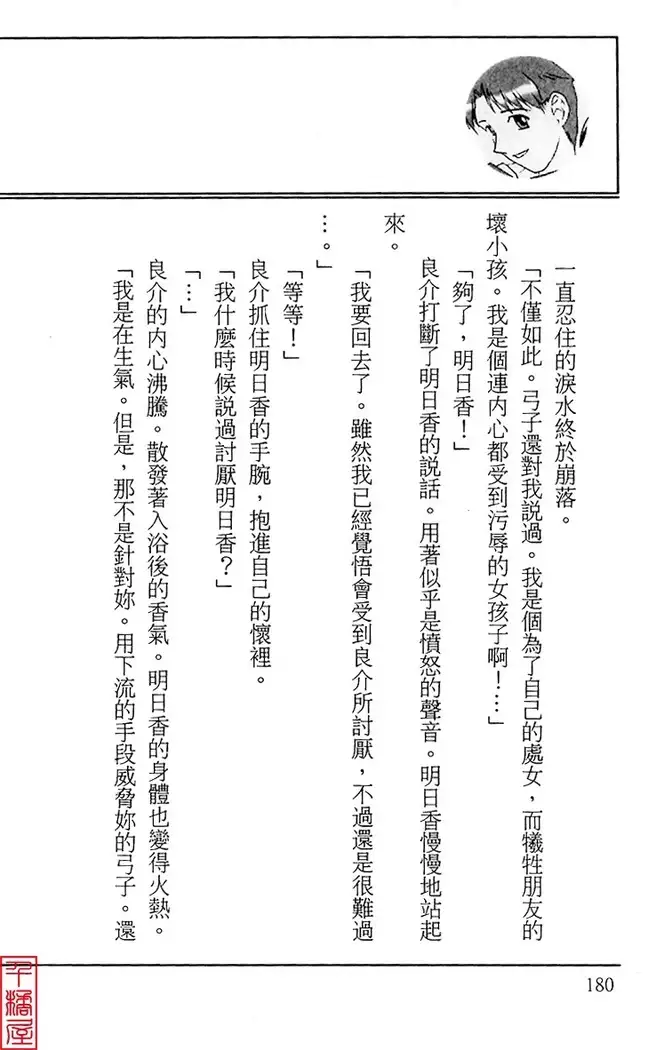 一直忍住的淚水終於崩落。
「不僅如此。弓子還對我說過。我是個為了自己的處女，而犧牲朋友的
壞小孩。我是個連內心都受到污辱的女孩子啊！⋯⋯」
「夠了，明日香！」
良介打斷了明日香的說話。用著似乎是憤怒的聲音。明日香慢慢地站起
來。
「我要回去了。雖然我已經覺悟會受到良介所討厭，不過還是很難過
⋯。」
「等等！」
良介抓住明日香的手腕，抱進自己的懷裡。
「我什麼時候說過討厭明日香？」
「⋯」
良介的內心沸騰。散發著入浴後的香氣。明日香的身體也變得火熱。
「我是在生氣。但是，那不是針對妳。用下流的手段威脅妳的弓子。還
180
千橘屋